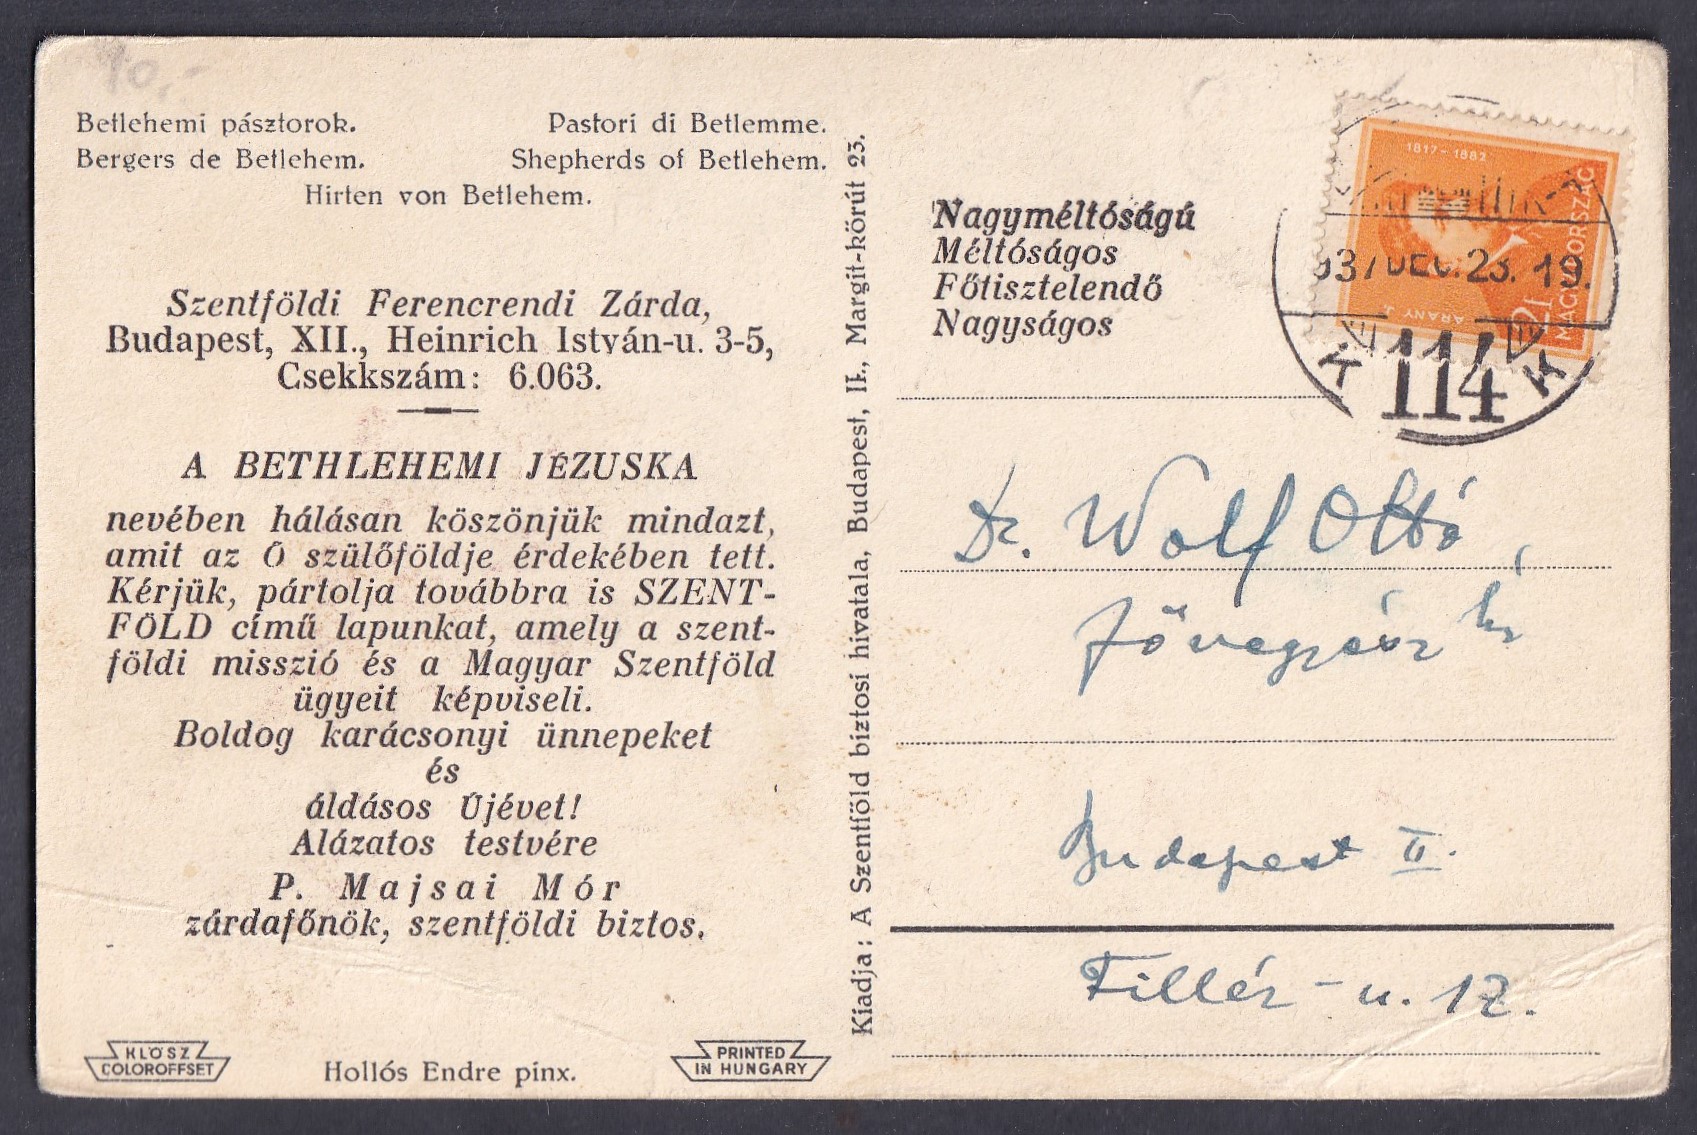 40,-
Betlehemi pásztorok.
Pastori di Betlemme.
Bergers de Betlehem.
Shepherds of Betlehem.
Hirten von Betlehem.
Szentföldi Ferencrendi Zárda,
Budapest, XII., Heinrich István-u. 3-5,
Csekkszám: 6.063.
A BETHLEHEMI JÉZUSKA
nevében hálásan köszönjük mindazt,
amit az Ő szülőföldje érdekében tett.
Kérjük, pártolja továbbra is SZENT-
FÖLD című lapunkat, amely a szent-
földi misszió és a Magyar Szentföld
ügyeit képviseli.
Boldog karácsonyi ünnepeket
és
áldásos Újévet!
Alázatos testvére
P. Majsai Mór
zárdafőnök, szentföldi biztos.
KLÖSZ
COLOROFFSET
Hollós Endre pinx.
PRINTED
IN HUNGARY
Kiadja: A Szentföld biztosi hivatala, Budapest, II., Margit-körút 23.
Nagyméltóságú
Méltóságos
Főtisztelendő
Nagyságos
1817-1882
MAGYARORSZÁG
ARANY J.
2f
937 DEC. 23. 19.
114
Dr. Wolf Ottó
Budapest II.
Fillér-u. 12.